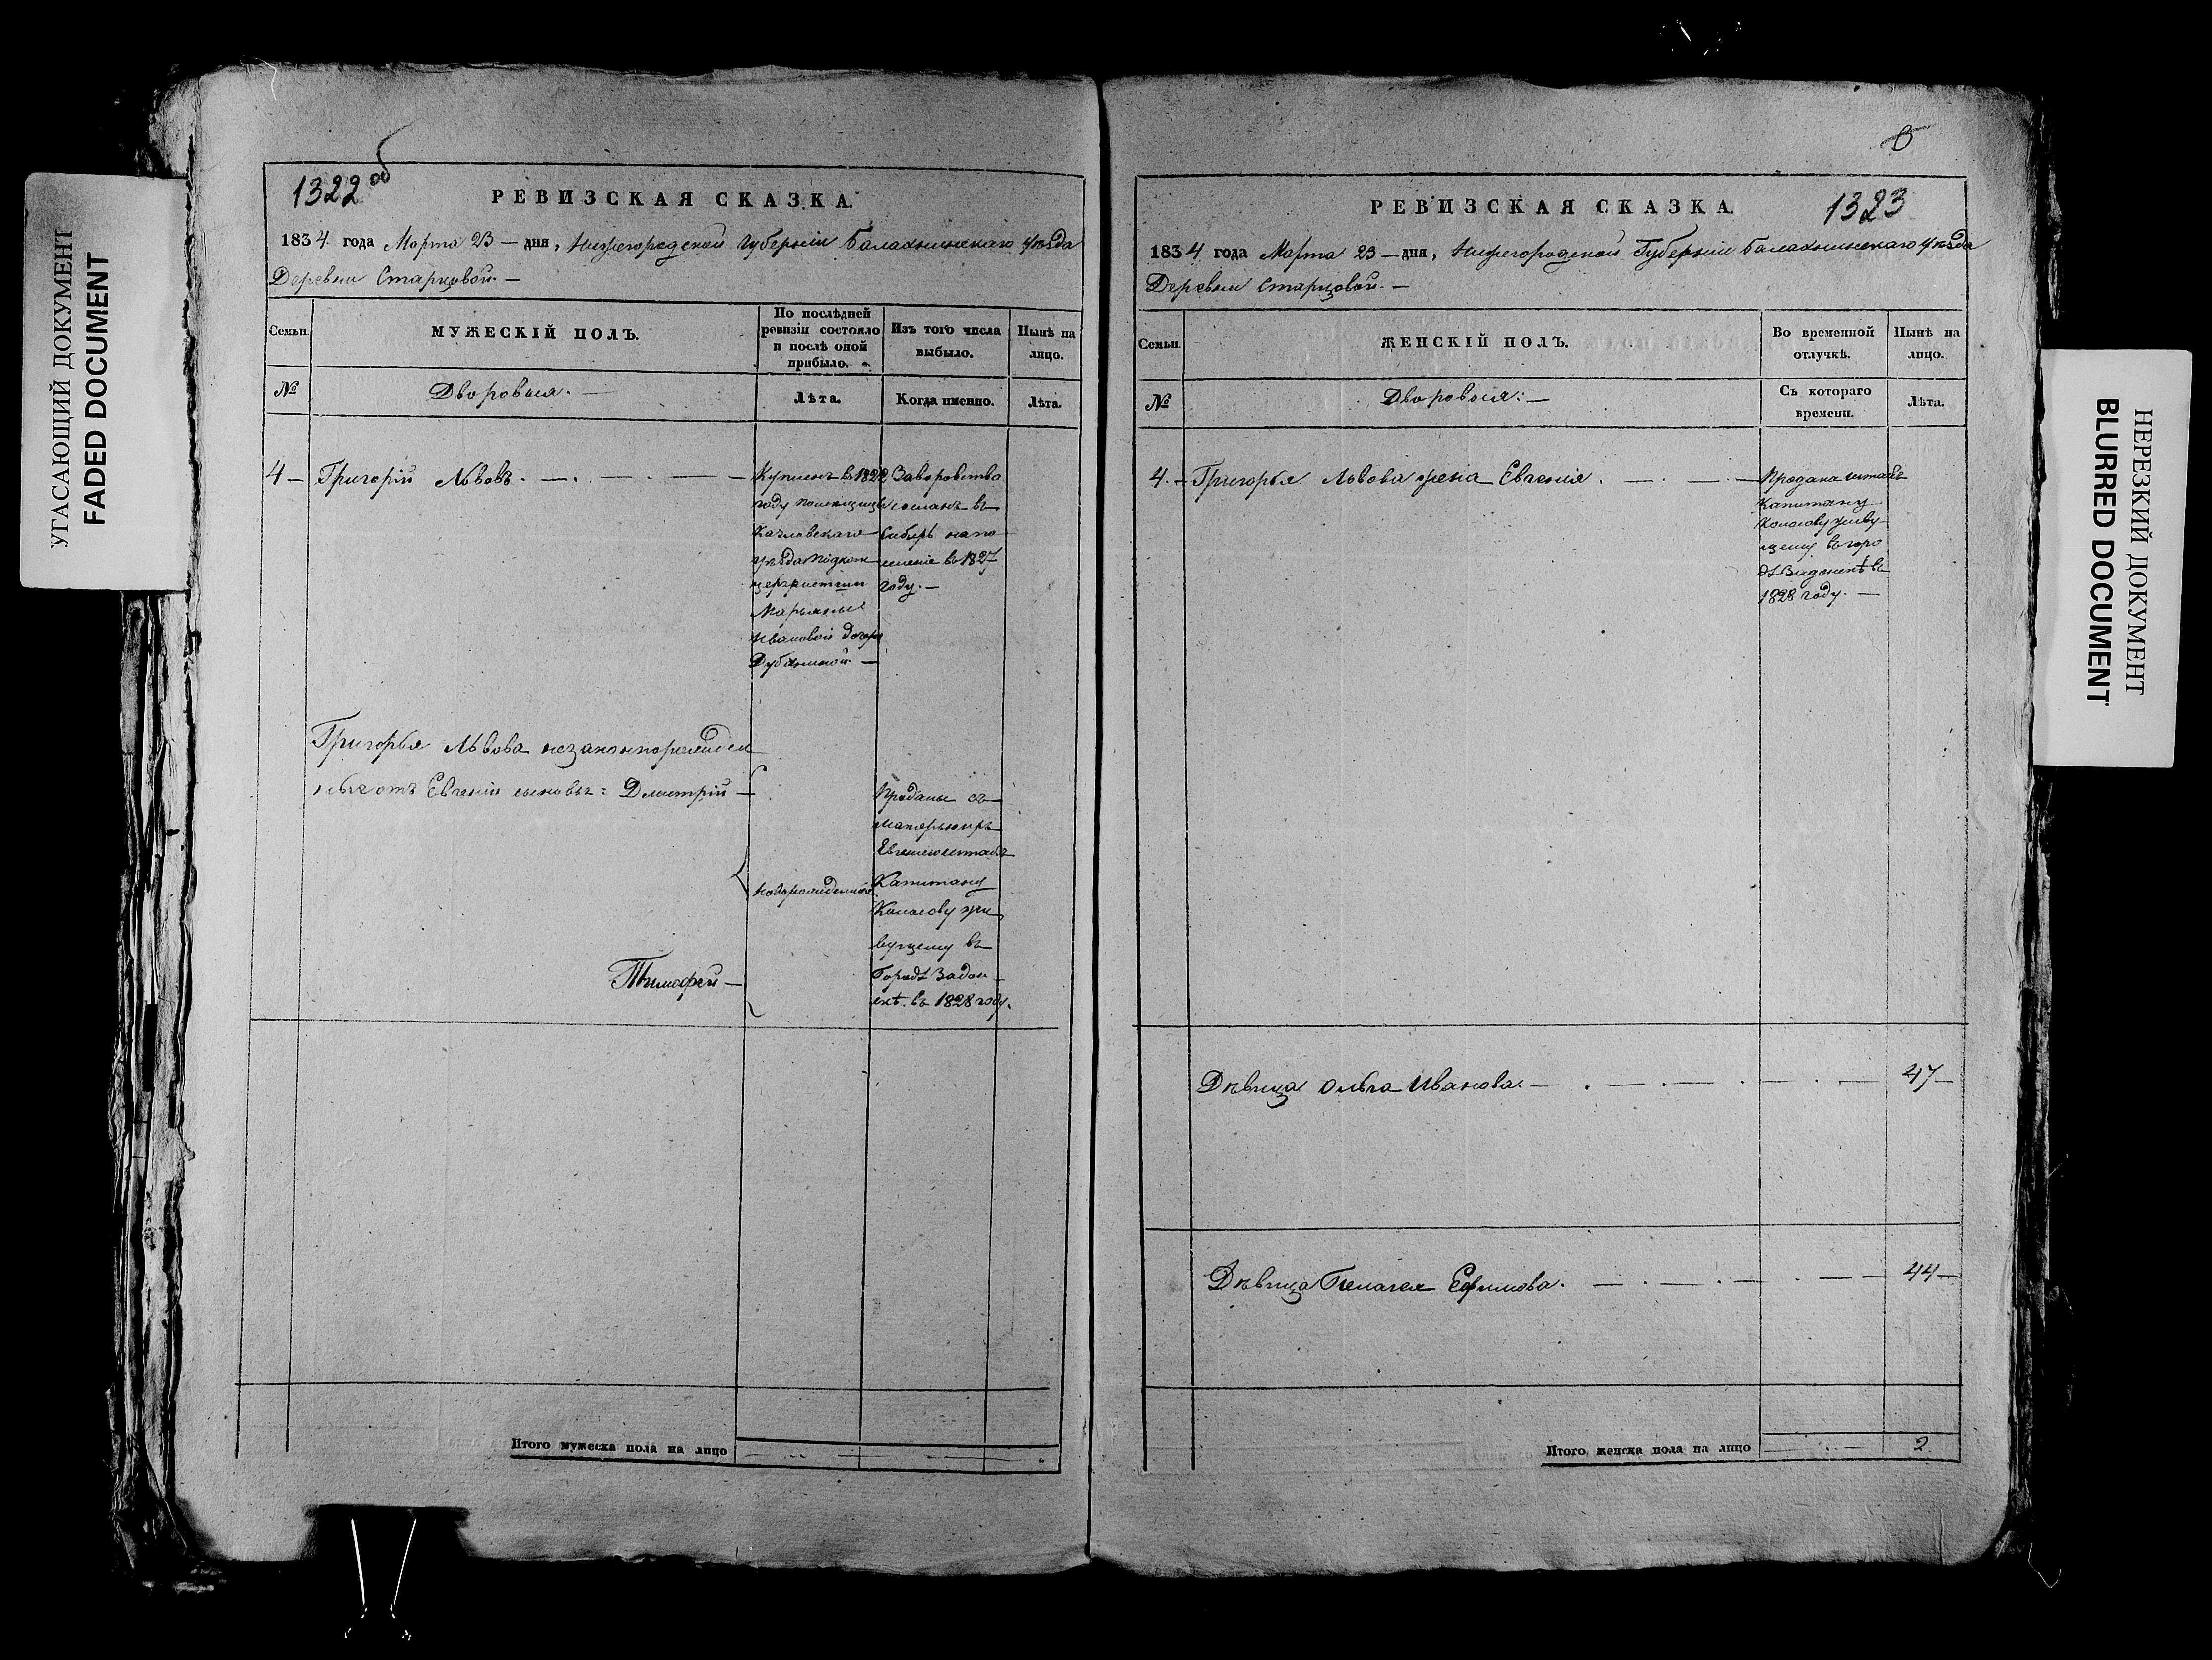 УГАСАЮЩИЙ ДОКУМЕНТ
FADED DOCUMENT
1322 об
РЕВИЗСКАЯ СКАЗКА.
1834 года Марта 23 — дня, Нижегородской Губернии Балахнинскаго уѣзда
Деревни Старцовой. —
Семьи
МУЖЕСКІЙ ПОЛЪ.
По послѣдней
ревизіи состояло
и послѣ оной
прибыло.
Изъ того числа
выбыло.
Нынѣ на
лицо.
№
Дворовыя. —
Лѣта.
Когда именно.
Лѣта.
4 — Григорій Львовъ. —
Купленъ в 1822
году
Казловскаго
уѣзда
Марьяны
Ивановой дочери
За воровство
сосланъ въ
Сибирь на по
селеніе въ 1827
году. —
Григорья Львова незаконнорожден
ныхъ отъ Евгеніи сыновья: Дмитрій —
Тимофей —
новорожденные
Проданы съ
матерью ихъ
Евгеніею штабъ
Капитану
Колосову жи
вущему въ
Городѣ Задон
скѣ. въ 1828 году.
Итого мужеска пола на лицо
1323
РЕВИЗСКАЯ СКАЗКА.
1834 года Марта 23 — дня, Нижегородской Губернии Балахнинскаго уѣзда
Деревни Старцовой. —
Семьи.
ЖЕНСКІЙ ПОЛЪ.
Во временной
отлучкѣ.
Нынѣ на
лицо.
№
Дворовыя: —
Съ котораго
времени.
Лѣта.
4. — Григорья Львова жена Евгенія. —
Продана штабъ
Капитану
Колосову живу
щему въ горо
дѣ Задонскѣ въ
1828 году. —
Дѣвица Ольга Иванова. — 47 —
Дѣвица Пелагея Ефимова. — 44 —
Итого женска пола на лицо 2
НЕРЕЗКИЙ ДОКУМЕНТ
BLURRED DOCUMENT